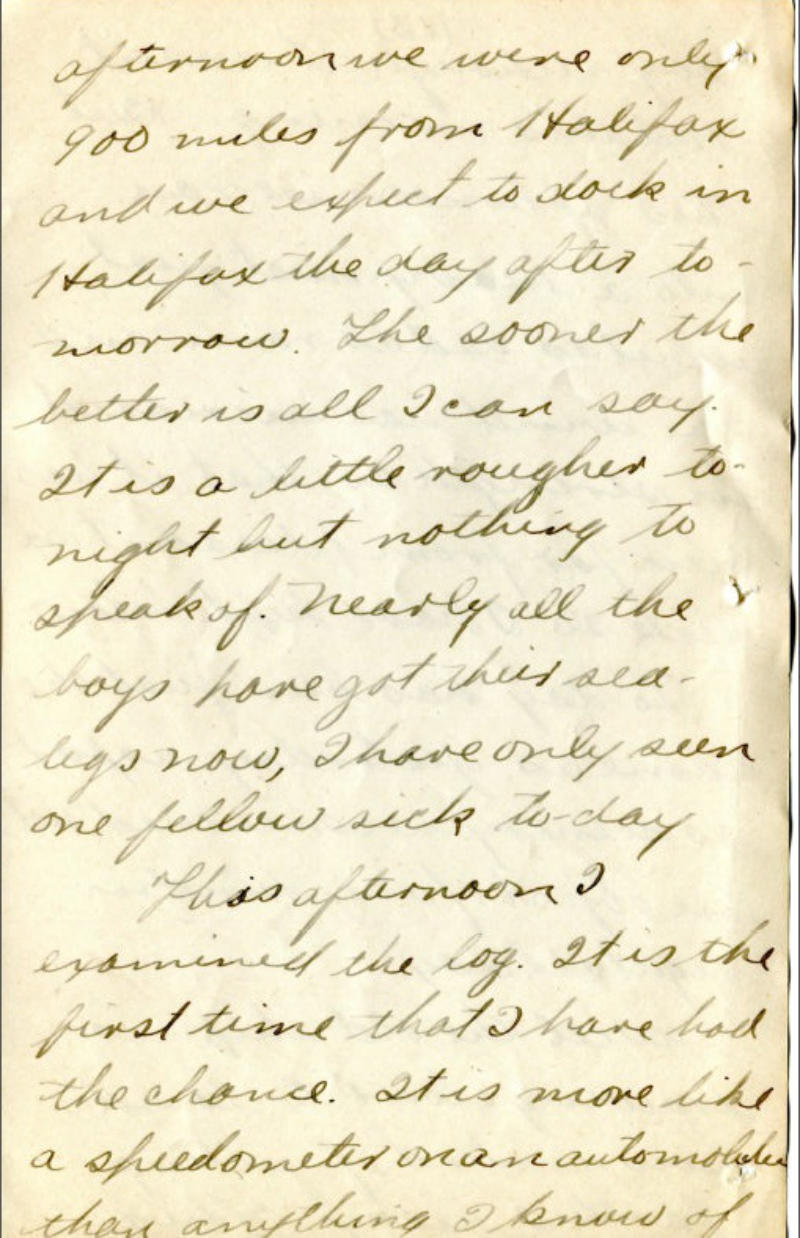 afternoon we were only
900 miles from Halifax
and we expect to dock in
Halifax the day after to-
morrow. The sooner the
better is all I can say.
It is a little rougher to-
night but nothing to
speak of. Nearly all the
boys have got their sea-
legs now, I have only seen
one fellow sick to-day
This afternoon I
examined the log. It is the
first time that I have had
the chance. It is more like
a speedometer on an automobile
than anything I know of